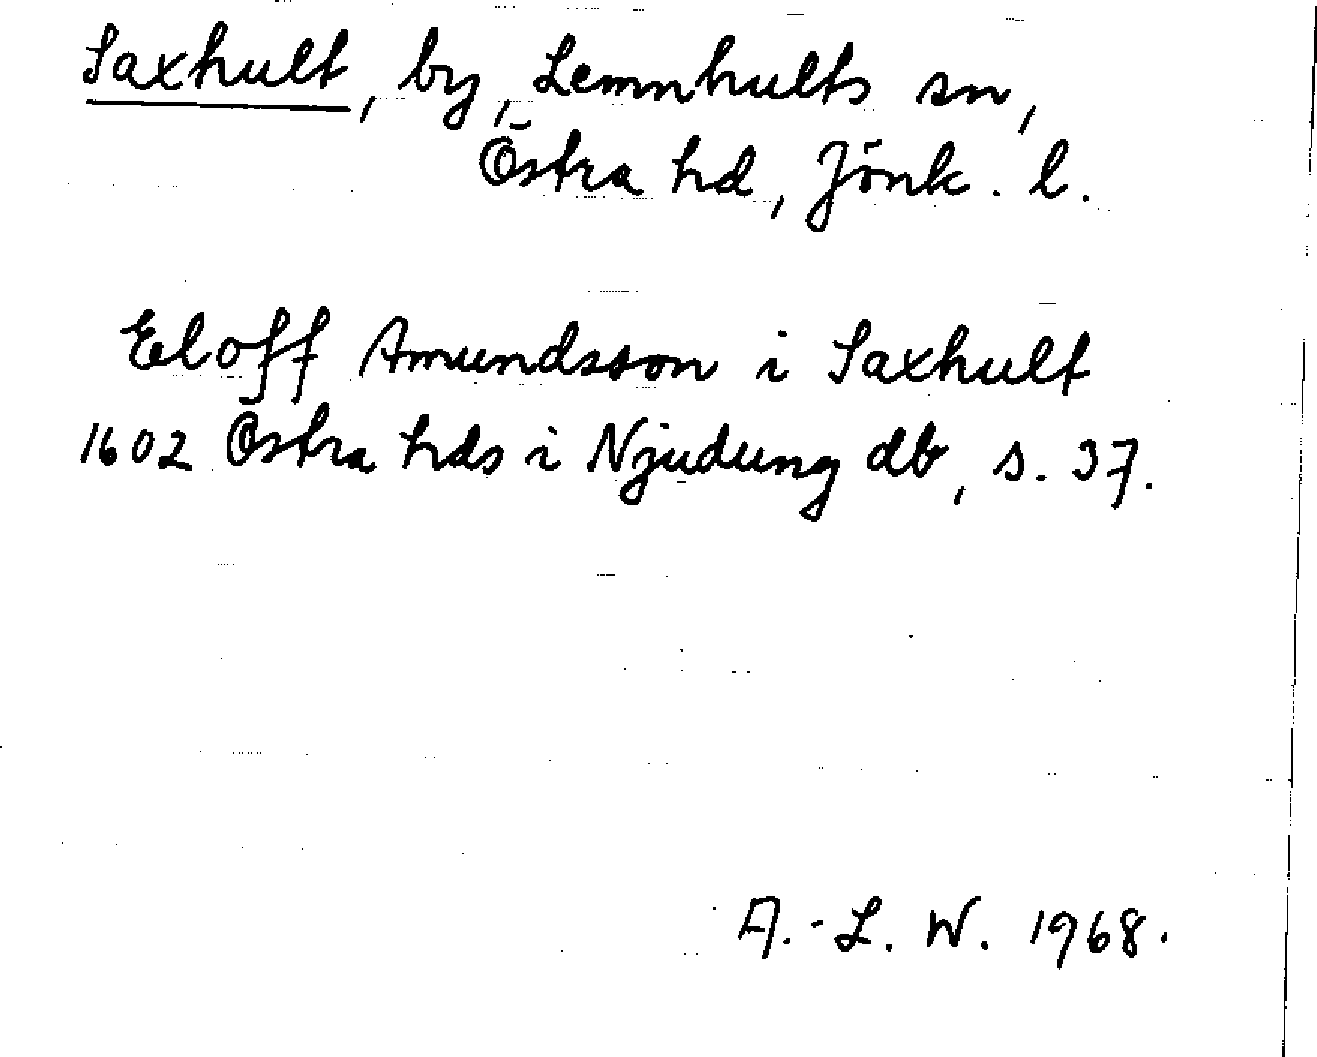 Saxhult, by, Lemnhults sn,
Östra hd, Jönk. l.
Eloff Amundsson i Saxhult
1602 Östra hds i Njudung db, s. 37.
A.-L. W. 1968.